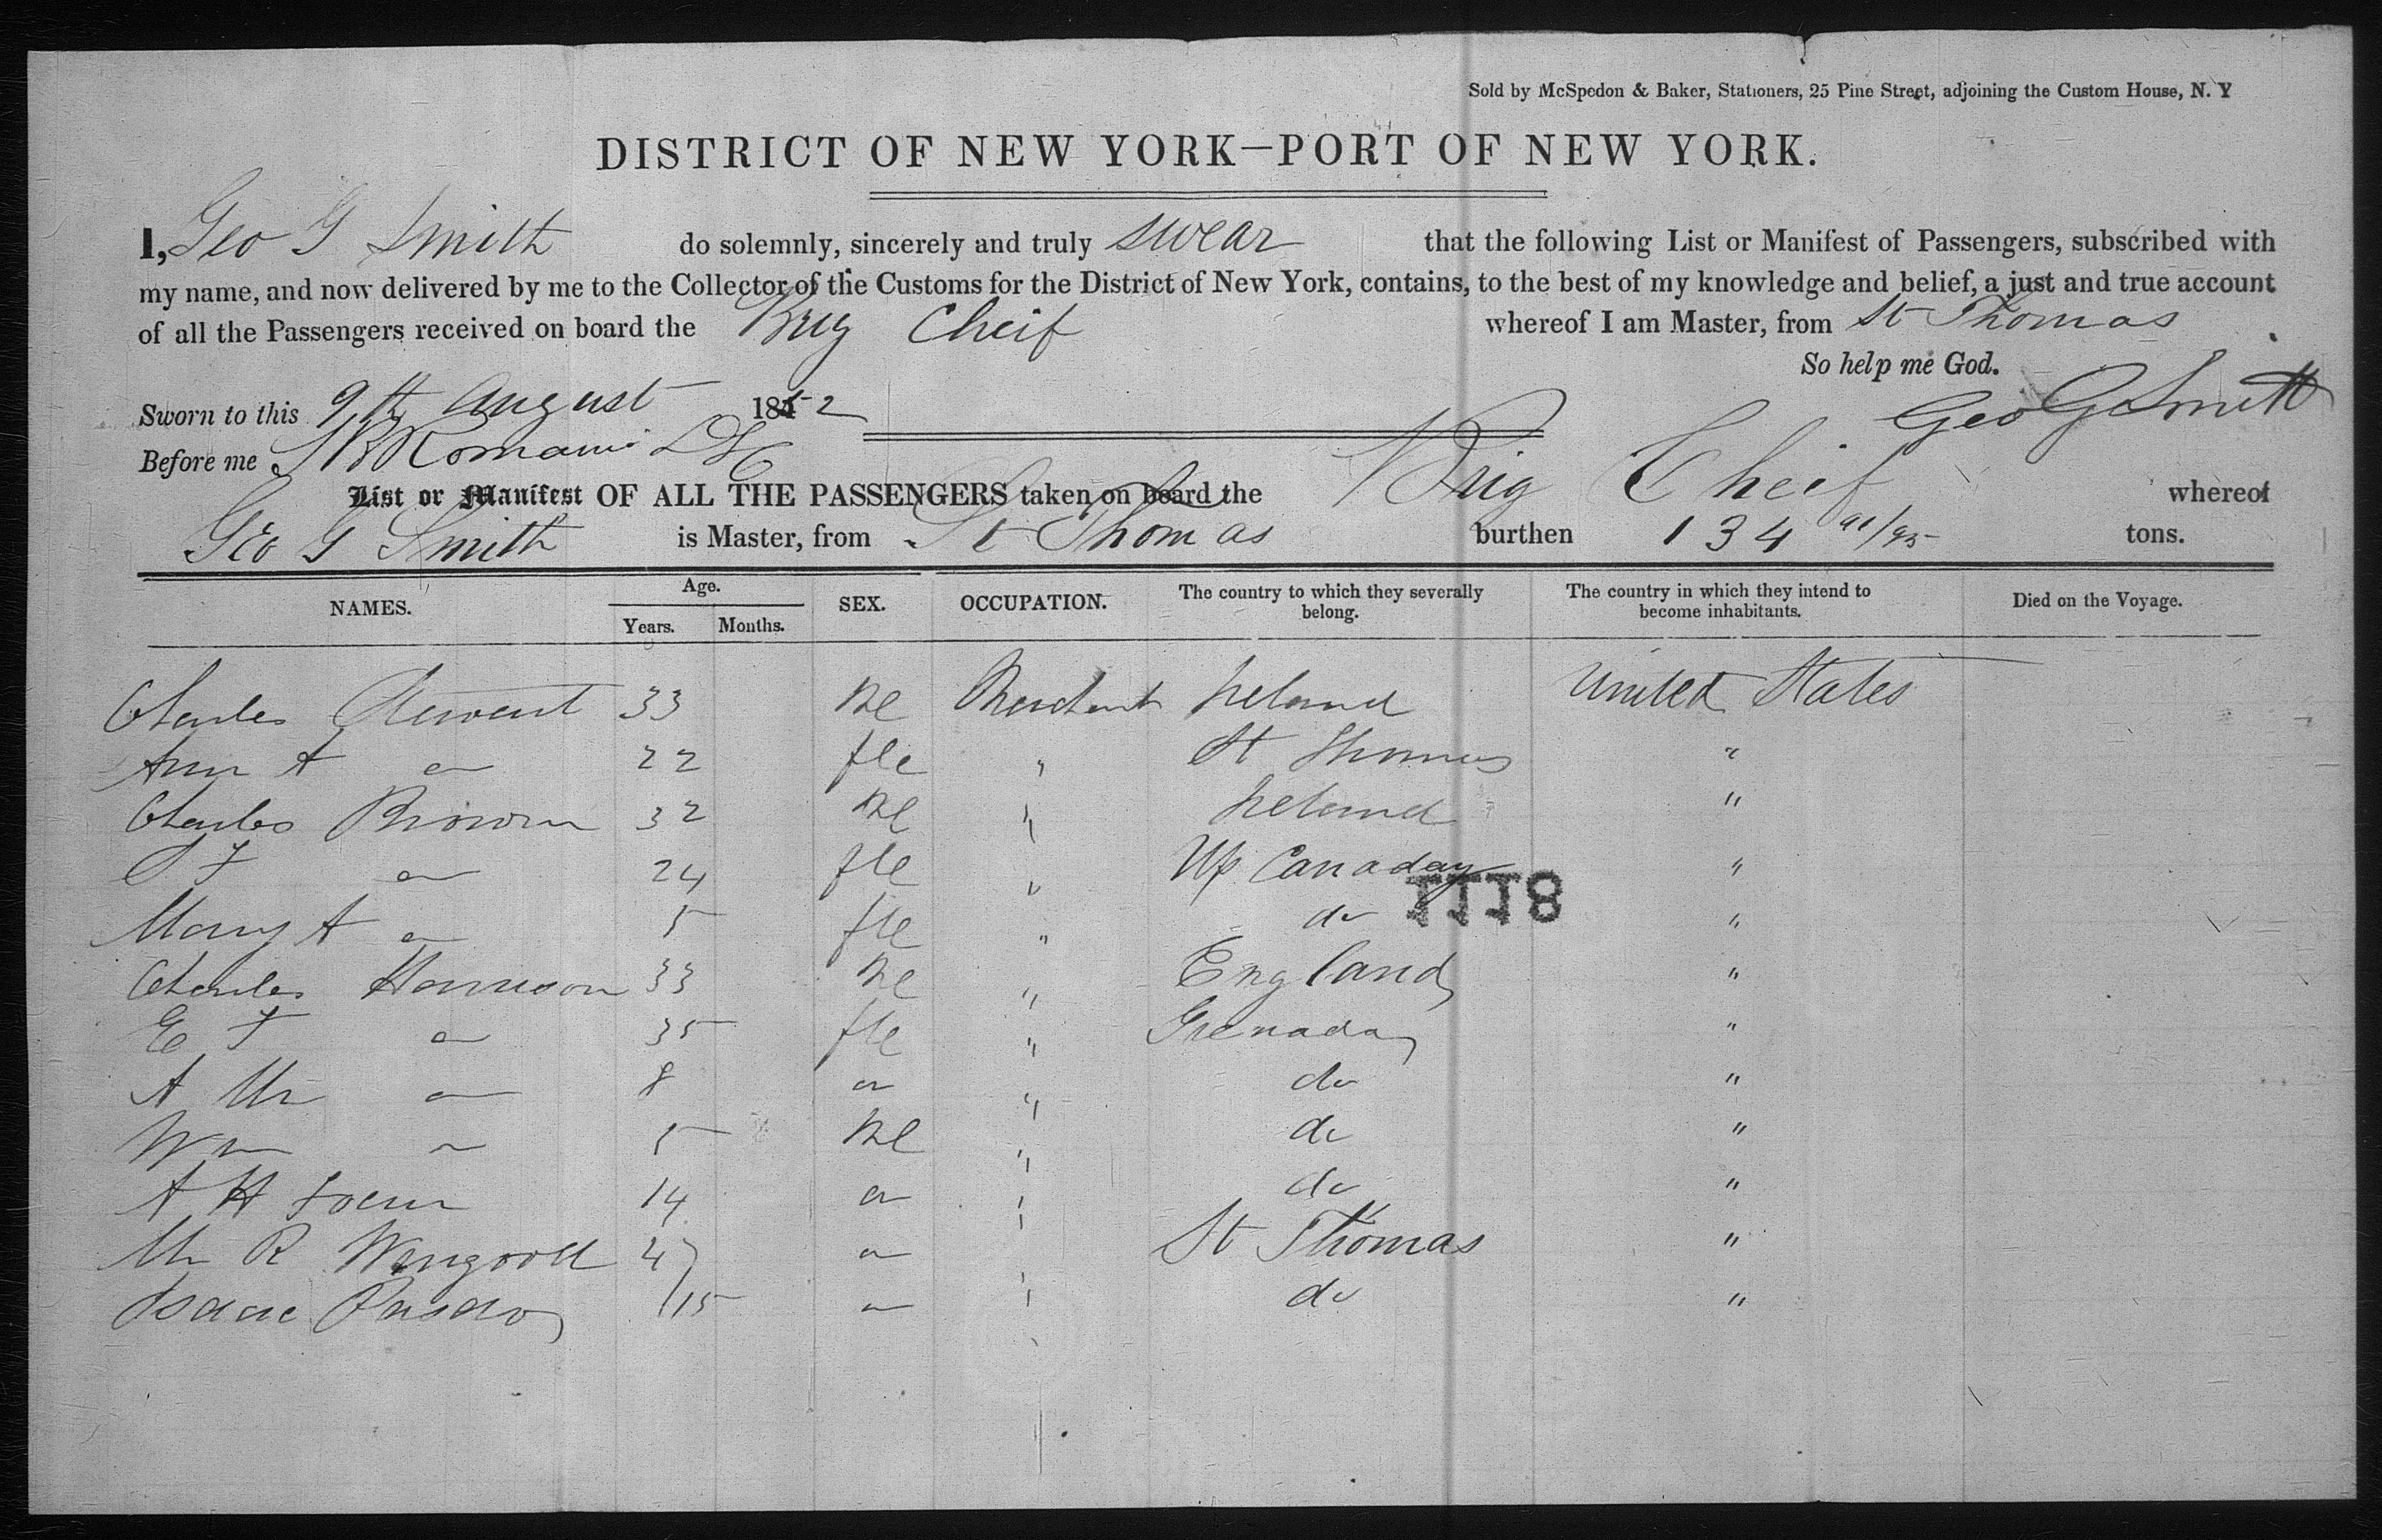 Sold by McSpedon & Baker, Stationers, 25 Pine Street, adjoining the Custom House, N. Y
DISTRICT OF NEW YORK—PORT OF NEW YORK.
I, Geo G Smith do solemnly, sincerely and truly swear that the following List or Manifest of Passengers, subscribed with
my name, and now delivered by me to the Collector of the Customs for the District of New York, contains, to the best of my knowledge and belief, a just and true account
of all the Passengers received on board the Brig Cheif whereof I am Master, from St Thomas
So help me God.
Sworn to this 9th August 1852 Geo G Smith
Before me
List or Manifest OF ALL THE PASSENGERS taken on board the Brig Cheif whereof
Geo G Smith is Master, from St Thomas burthen 134 91/95 tons.
NAMES. Age. Years. Months. SEX. OCCUPATION. The country to which they severally belong. The country in which they intend to become inhabitants. Died on the Voyage.
Charles 33 Me Merchant Ireland United States
Ann A do 22 fle " St Thomas "
Charles Brown 32 Me " Ireland "
F do 24 fle " Up Canaday "
1118
Mary A do 5 fle " do "
Charles Harrison 33 Me " England "
E F do 35 fle " Grenada "
A M do 8 do " do "
Wm do 5 Me " do "
A H 14 do " do "
R 47 do " St Thomas "
Isaac 15 do " do "